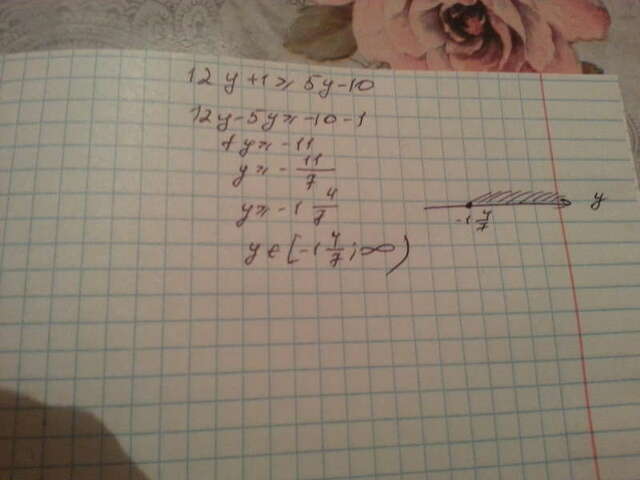 12y+1≥5y-10
12y-5y≥-10-1
7y≥-11
y≥-11/7
y≥-1 4/7
y∈[-1 4/7;∞)
-1 4/7
y